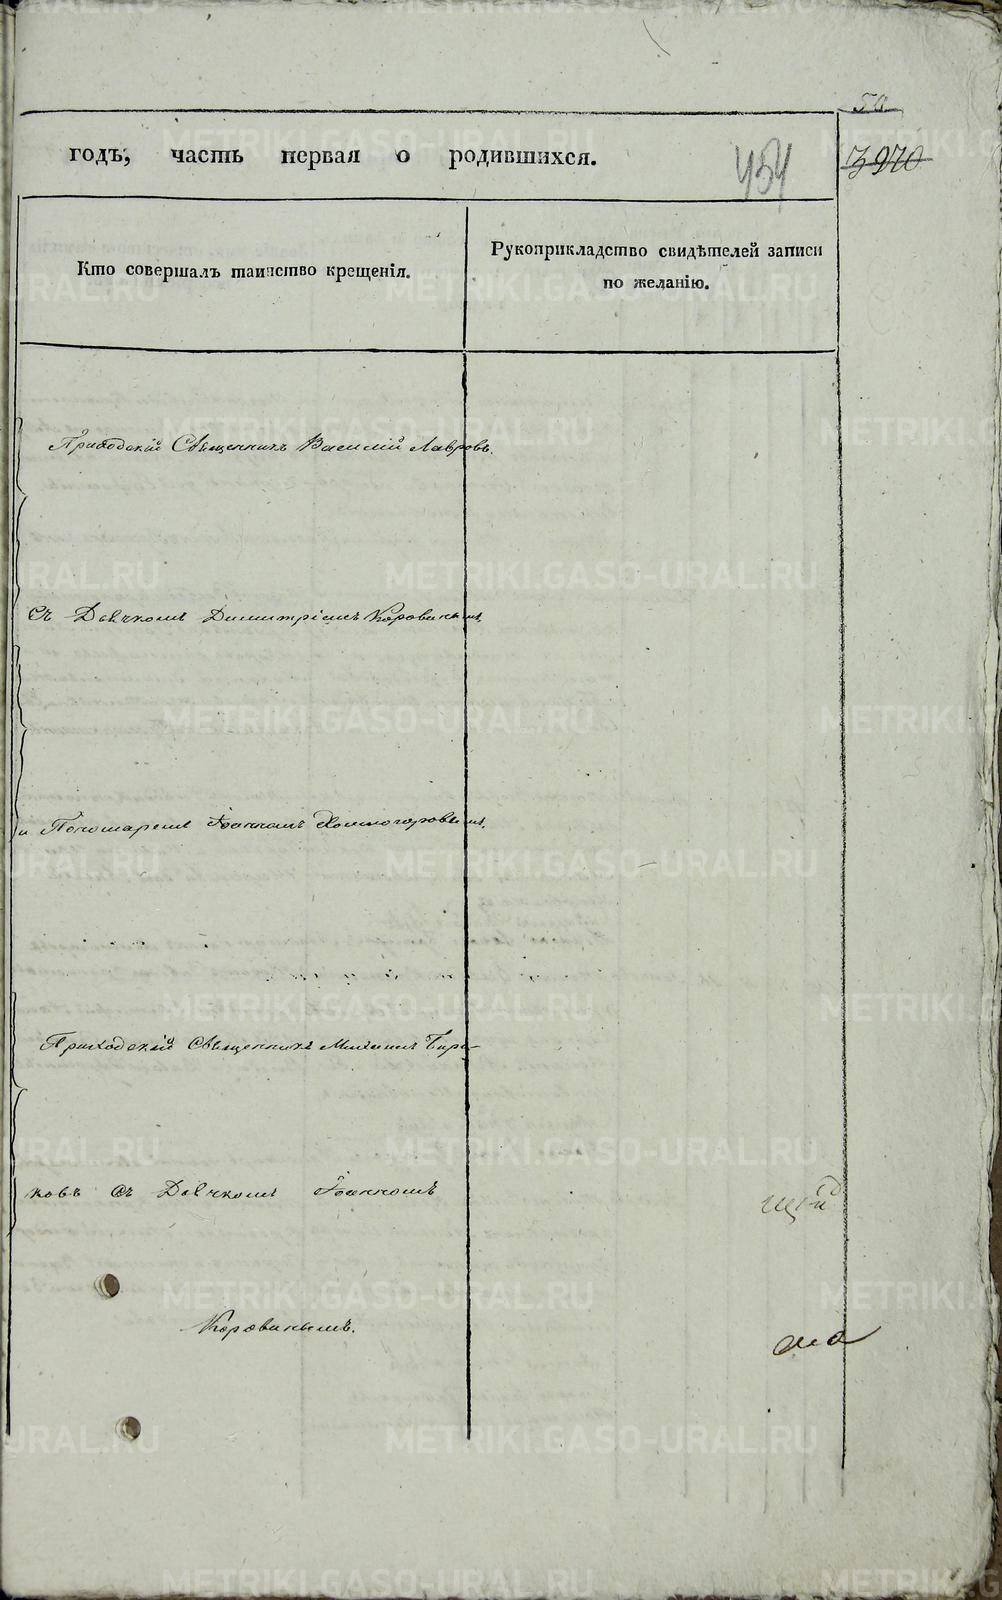 50
годъ, часть первая о родившихся.
454
3970
Кто совершалъ таинство крещенія.
Рукоприкладство свидѣтелей записи
по желанію.
Приходскій Священникъ Василій Лавровъ.
Съ Дьячкомъ Димитріемъ Коровинымъ
и Пономаремъ Іоанномъ Холмогоровымъ.
Приходскій Священникъ Михаилъ Бирю-
ковъ съ Дьячкомъ Іоанномъ
Коровинымъ.
METRIKI.GASO-URAL.RU